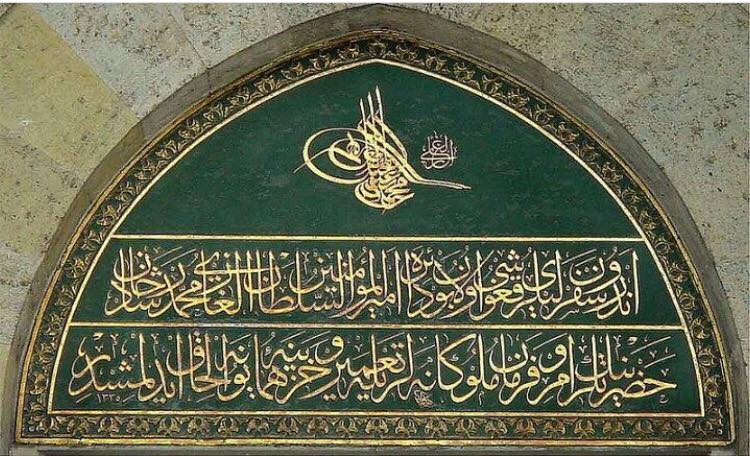 الغازی
اندرون سفرلیلری قوغوشی اولان بو دائره امیر المؤمنین السلطان الغازی محمد رشاد خان
حضرتلرینك امر و فرمان ملوكانه لریله تعمیر و خزینه همایونه الحاق ایدلمشدر ١٣٣٥